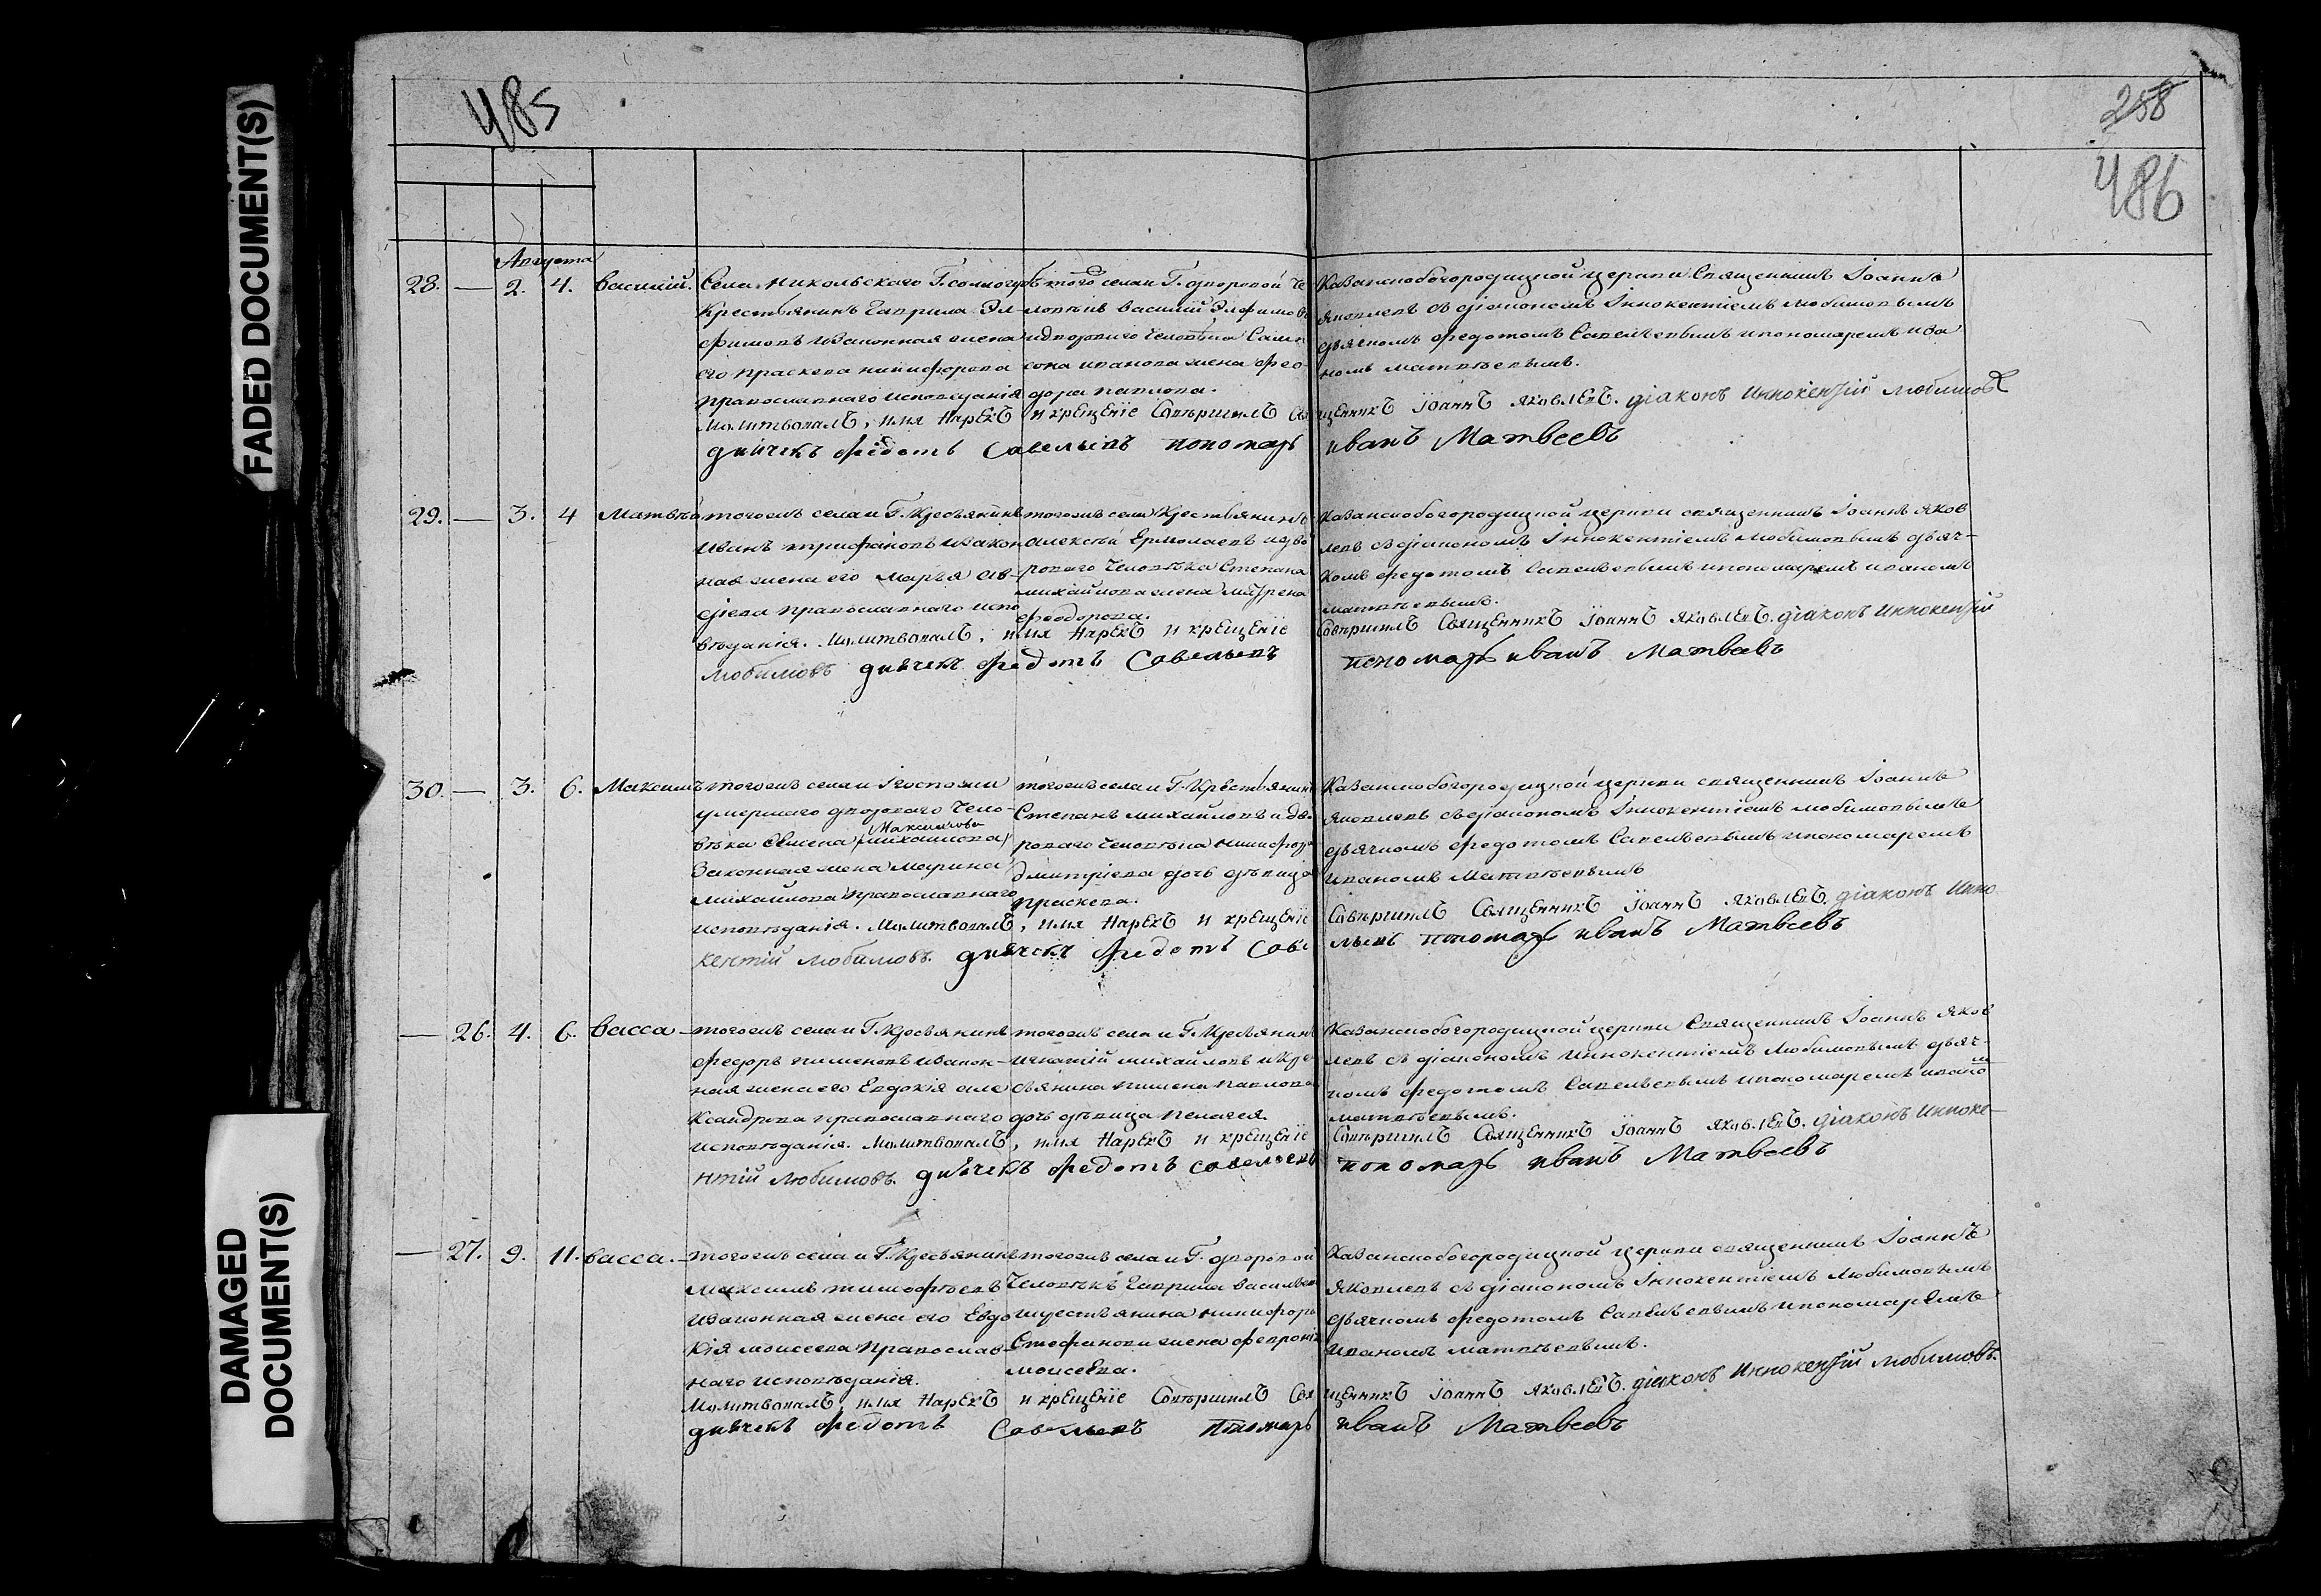 FADED DOCUMENT(S)
DAMAGED DOCUMENT(S)
485
258
486
Августа
28. — 2. 4. Василий.
Села Никольскаго Г.
Крестьянинъ Гаврила Эл-
фимовъ и законная жена
его Праскева Никифорова
православнаго исповеданія
тогож села и Г. дворовой че
ловѣкъ Василий Элфимовъ
и двороваго человѣка Самп
сона Иванова жена Фео-
дора Павлова.
Казанскобогородицкой церкви Священникъ Іоаннъ
Яковлевъ съ діакономъ Інокентіемъ Любимовымъ
дьячкомъ Федотомъ Савельевымъ и пономаремъ Ива
номъ Матвѣевымъ.
Молитвовалъ, имя нарекъ и крещеніе совершилъ Свя
щенникъ Іоаннъ Яковлевъ. діаконъ Инокентій Любимовъ
дьячекъ Федотъ Савельевъ пономарь Иванъ Матвеевъ
29. — 3. 4 Матвѣй
тогожъ села и Г. кресьянинъ
Иванъ Трифановъ и закон
ная жена его Марья Ав-
дѣева православнаго испо
вѣданія.
тогожъ села крестьянинъ
Алексѣй Ермолаевъ и дво
роваго человѣка Степана
Михайлова жена Матрена
Феодорова.
Казанскобогородицкой церкви священникъ Іоаннъ Яков
левъ съ діакономъ Інокентіемъ Любимовымъ дьяч-
комъ Федотомъ Савельевымъ и пономаремъ Иваномъ
Матвѣевымъ.
Молитвовалъ, имя нарекъ и крещеніе совершилъ Священникъ Іоаннъ Яковлевъ. діаконъ Инокентій
Любимовъ дьячекъ Федотъ Савельевъ пономарь Иванъ Матвеевъ
30. — 3. 6. Максимъ
тогожъ села и Госпожи
умершаго двороваго чело-
вѣка Семена Максимова (Михайлова)
законная жена Марина
Михайлова православнаго
исповѣданія.
тогожъ села и Г. крестьянинъ
Степанъ Михайловъ и дво
роваго человѣка Никифора
Дмитріева дочь дѣвица
Праскева.
Казанскобогородицкой церкви священникъ Іоаннъ
Яковлевъ съ діакономъ Інокентіемъ Любимовымъ
дьячкомъ Федотомъ Савельевымъ и пономаремъ
Иваномъ Матвѣевымъ
Молитвовалъ, имя нарекъ и крещеніе совершилъ Священникъ Іоаннъ Яковлевъ. діаконъ Инно
кентій Любимовъ. дьячекъ Федотъ Саве
льевъ пономарь Иванъ Матвеевъ
— 26. 4. 6. Васса —
тогожъ села и Г. кресьянинъ
Федоръ Пименовъ и закон-
ная жена его Евдокія Але
ксандрова православнаго
исповѣданія.
тогожъ села и Г. кресьянинъ
Игнатій Михайловъ и кре
сьянина Пимена Павлова
дочь дѣвица Пелагея
Казанскобогородицкой церкви Священникъ Іоаннъ Яков
левъ съ діакономъ Иннокентіемъ Любимовымъ дьяч-
комъ Федотомъ Савельевымъ и пономаремъ Ивано
м
Матвѣевымъ.
Молитвовалъ, имя нарекъ и крещеніе совершилъ Священникъ Іоаннъ Яковлевъ. діаконъ Инноке-
нтій Любимовъ. дьячекъ Федотъ Савельевъ пономарь Иванъ Матвеевъ
— 27. 9. 11. Васса. —
тогожъ села и Г. кресьянинъ
Максимъ Тимофѣевъ
и законная жена его Евдо
кія Моисеева православ-
наго исповѣданія.
тогожъ села и Г. дворовой
человѣкъ Гаврила Васильевъ
и крестьянина Никифора
Стефанова жена Февронія
Моисеева.
Казанскобогородицкой церкви священникъ Іоаннъ
Яковлевъ съ діакономъ Інокентіемъ Любимовымъ
дьячкомъ Федотомъ Савельевымъ и пономаремъ
Иваномъ Матвѣевымъ.
Молитвовалъ, имя нарекъ и крещеніе совершилъ Свя
щенникъ Іоаннъ Яковлевъ. діаконъ Инокентій Любимовъ.
дьячекъ Федотъ Савельевъ пономарь Иванъ Матвеевъ